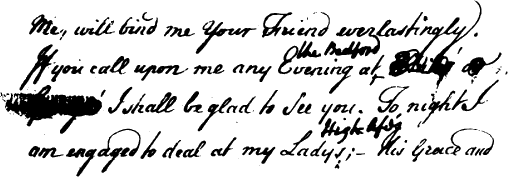 Me, will bind me Your Friend everlastingly.
the Bedford
If you call upon me any Evening at
I shall be glad to See you. To night I
am engaged to deal at my Ladys; – His Grace and